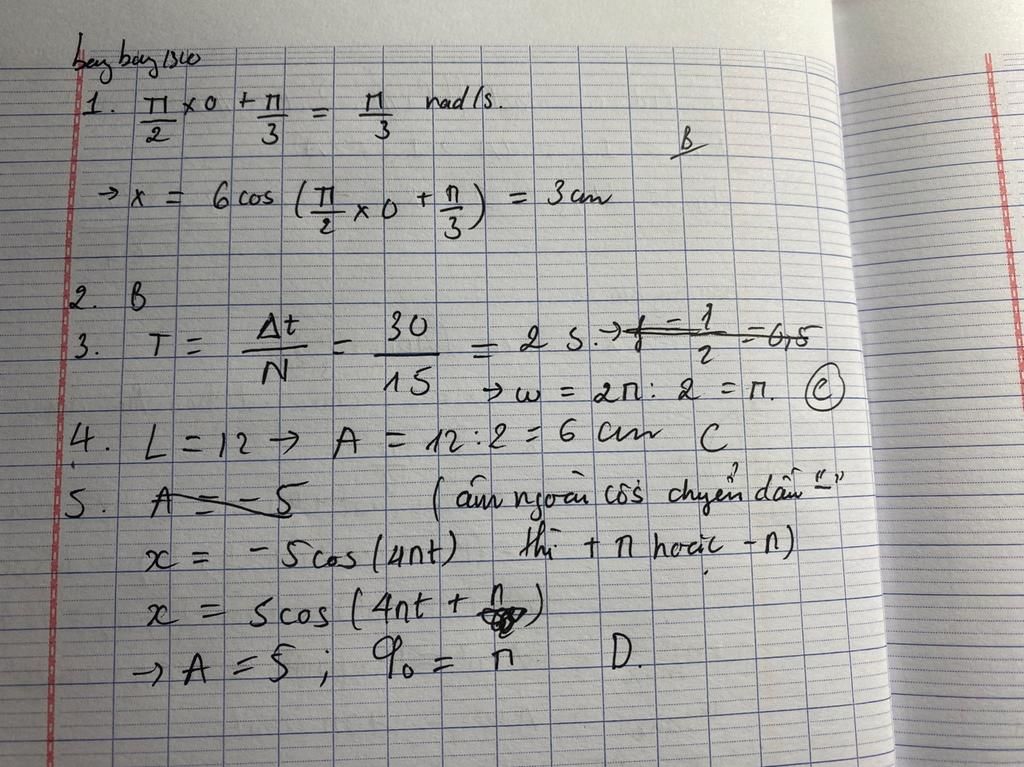 bay bay
1. π/2 × 0 + π/3 = π/3 rad/s.
B
→ x = 6 cos (π/2 × 0 + π/3) = 3 cm
2. B
3. T = Δt/N = 30/15 = 2 s. → f = 1/2 = 0,5
→ w = 2π : 2 = π. C
4. L = 12 → A = 12 : 2 = 6 cm C
5. A = -5 (âm ngoài cos chuyển dấu "-"
x = -5 cos (4πt) thì + π hoặc - π)
x = 5 cos (4πt + π)
→ A = 5 ; φ₀ = π D.